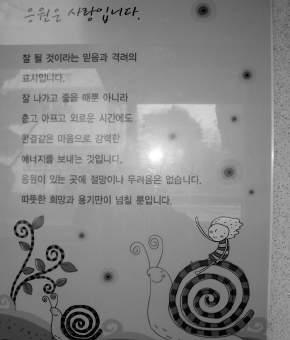 응원은 사랑입니다.
잘 될 것이라는 믿음과 격려의
표시입니다.
잘 나가고 좋을 때뿐 아니라
춥고 아프고 외로운 시간에도
한결같은 마음으로 강력한
에너지를 보내는 것입니다.
응원이 있는 곳에 절망이나 두려움은 없습니다.
따뜻한 희망과 용기만이 넘칠 뿐입니다.